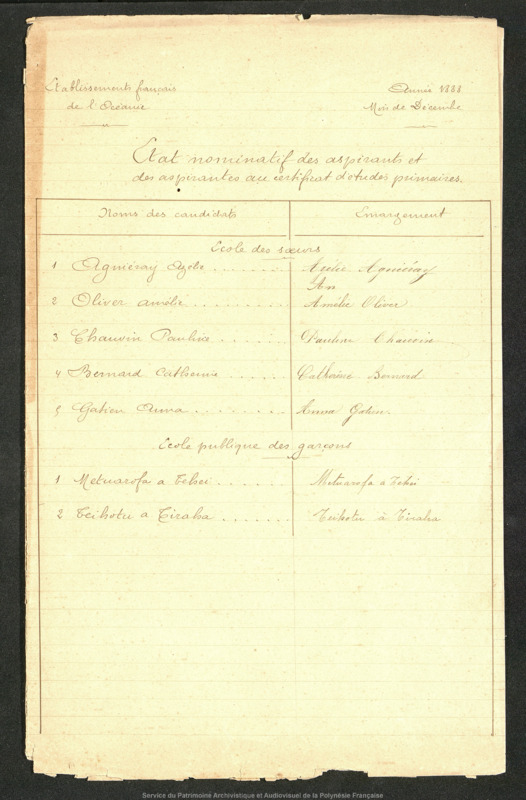 Etablissements français
de l'Océanie
Année 1888
Mois de Décembre
Etat nominatif des aspirants et
des aspirantes au certificat d'études primaires.
Noms des candidats Emargement
Ecole des sœurs
1 Agniéray Azélie . . . . . . . Azélie Agniéray
An
2 Oliver Amélie . . . . . . . . . Amélie Oliver
3 Chauvin Pauline . . . . . . Pauline Chauvin
4 Bernard Catherine . . . . . . Catherine Bernard
5 Gatien Anna . . . . . . . . . Anna Gatien
Ecole publique des garçons
1 Metuarofa a Tehei . . . . . . Metuarofa a Tehei
2 Teihotu a Tiraha . . . . . . . Teihotu à Tiraha
Service du Patrimoine Archivistique et Audiovisuel de la Polynésie Française